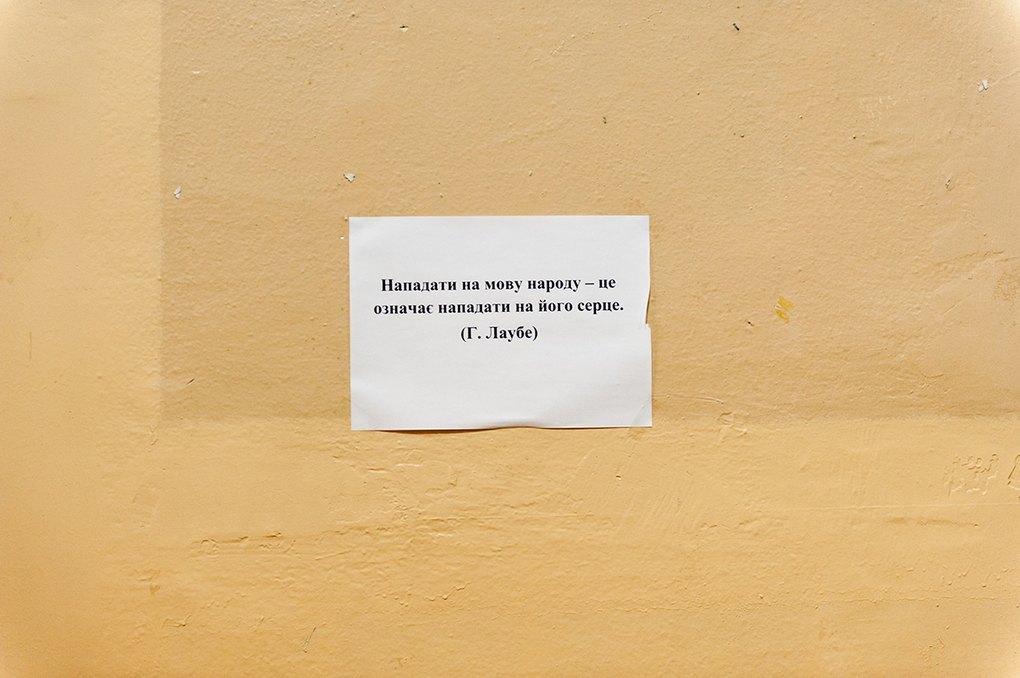 Нападати на мову народу – це
означає нападати на його серце.
(Г. Лаубе)